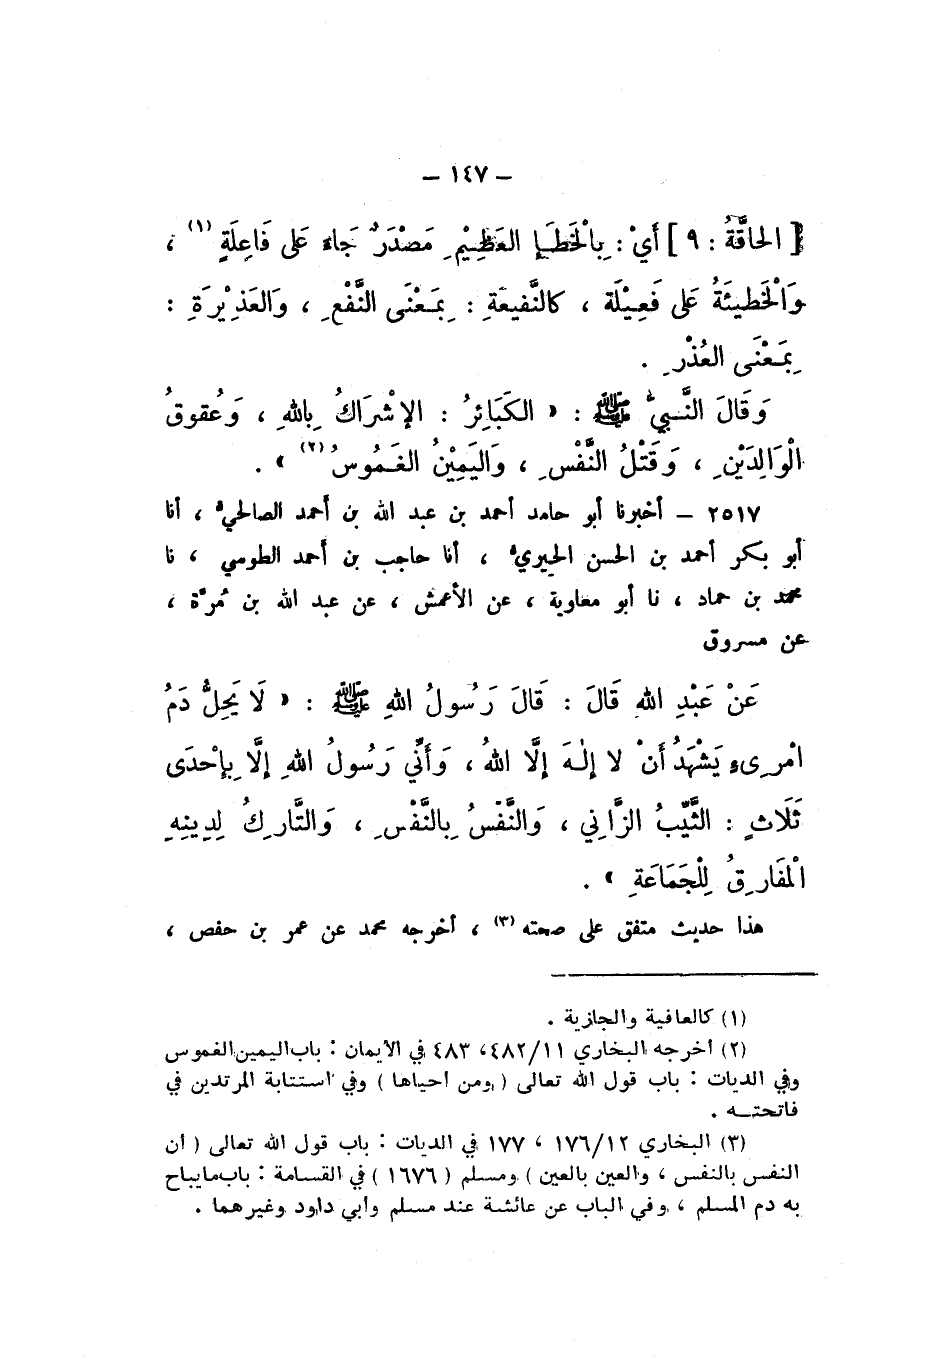 – ١٤٧ –
[ الحاقَّةُ : ٩ ] أَيْ : بِالْخَطَإِ العَظِيْمِ مَصْدَرٌ جَاءَ عَلى فَاعِلَةٍ (١) ،
وَالْخَطيئَةُ عَلى فَعِيْلَة ، كالنَّفيعَةِ : بِمَعْنَى النَّفْعِ ، وَالعَذِيْرَةِ :
بِمَعْنَى العُذْرِ .
وَقَالَ النَّبيُّ ﷺ : « الكَبَائِرُ : الإشْرَاكُ بِاللهِ ، وَعُقوقُ
الْوَالِدَيْنِ ، وَقَتْلُ النَّفْسِ ، وَاليَمِيْنُ الغَمُوسُ (٢) » .
٢٥١٧ – أخبرنا أبو حامد أحمد بن عبد الله بن أحمد الصالحيُّ ، أنا
أبو بكر أحمد بن الحسن الحِيريُّ ، أنا حاجب بن أحمد الطوسي ، نا
محمد بن حماد ، نا أبو معاوية ، عن الأعمش ، عن عبد الله بن مُرَّة ،
عن مسروق
عَنْ عَبْدِ اللهِ قَالَ : قَالَ رَسُولُ اللهِ ﷺ : « لَا يَحِلُّ دَمُ
امْرِىءٍ يَشْهَدُ أَنْ لا إلٰهَ إلَّا اللهُ ، وَأَنِّي رَسُولُ اللهِ إلَّا بِإحْدَى
ثَلَاثٍ : الثَّيِّبُ الزَّانِي ، وَالنَّفْسُ بِالنَّفْسِ ، وَالتَّارِكُ لِدِينِهِ
الْمَفَارِقُ لِلْجَمَاعَةِ » .
هذا حديث متفق على صحته (٣) ، أخرجه محمد عن عمر بن حفص ،
(١) كالعافية والجازية .
(٢) أخرجه البخاري ٤٨٢/١١، ٤٨٣ في الأيمان : باب اليمين الغموس
وفي الديات : باب قول الله تعالى ( ومن أحياها ) وفي استتابة المرتدين في
فاتحته .
(٣) البخاري ١٧٦/١٢ ، ١٧٧ في الديات : باب قول الله تعالى ( أن
النفس بالنفس ، والعين بالعين ) ومسلم ( ١٦٧٦ ) في القسامة : باب مايباح
به دم المسلم ، وفي الباب عن عائشة عند مسلم وأبي داود وغيرهما .